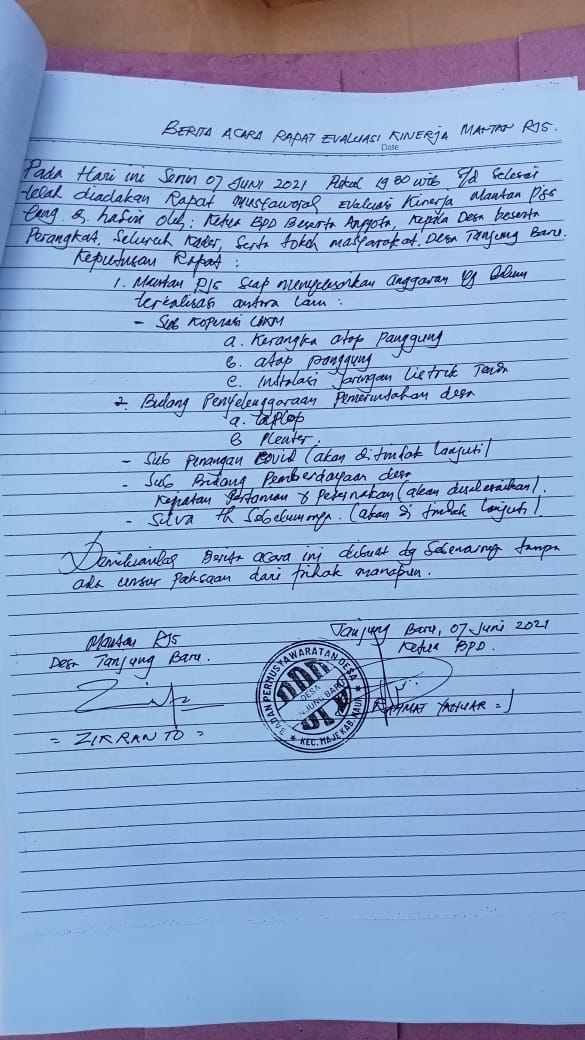 BERITA ACARA RAPAT EVALUASI KINERJA MANTAN PJS.
Date
Pada Hari ini Senin 07 JUNI 2021 Pukul 19 30 WIB S/d Selesai
telah diadakan Rapat musyawarah Evaluasi Kinerja Mantan Pjs
yang di hadiri oleh: Ketua BPD Beserta Anggota, Kepala Desa beserta
Perangkat, Seluruh Kader, Serta tokoh masyarakat. Desa Tanjung Baru.
Keputusan Rapat :
1. Mantan PJS Siap menyelesaikan anggaran yg Belum
terealisasi antara Lain :
- Sub Koperasi UKM
a. Kerangka atap Panggung
b. atap panggung
c. Instalasi Jaringan Listrik
2. Bidang Penyelenggaraan Pemerintahan desa
a. Laptop
b
- Sub Penangan COVID (akan di tindak lanjuti)
- Sub Bidang Pemberdayaan desa
Kegiatan Pertanian & Peternakan (akan diselesaikan).
- Silva th Sebelumnya. (akan di tindak lanjuti)
Demikianlah Berita acara ini dibuat dg Sebenarnya tanpa
ada unsur Paksaan dari Pihak manapun.
Tanjung Baru, 07 Juni 2021
Mantan PJS
Ketua BPD.
Desa Tanjung Baru.
BADAN PERMUSYAWARATAN DESA
DESA
TANJUNG BARU
KEC. MAJE KAB. KAUR
= ZIKRANTO =